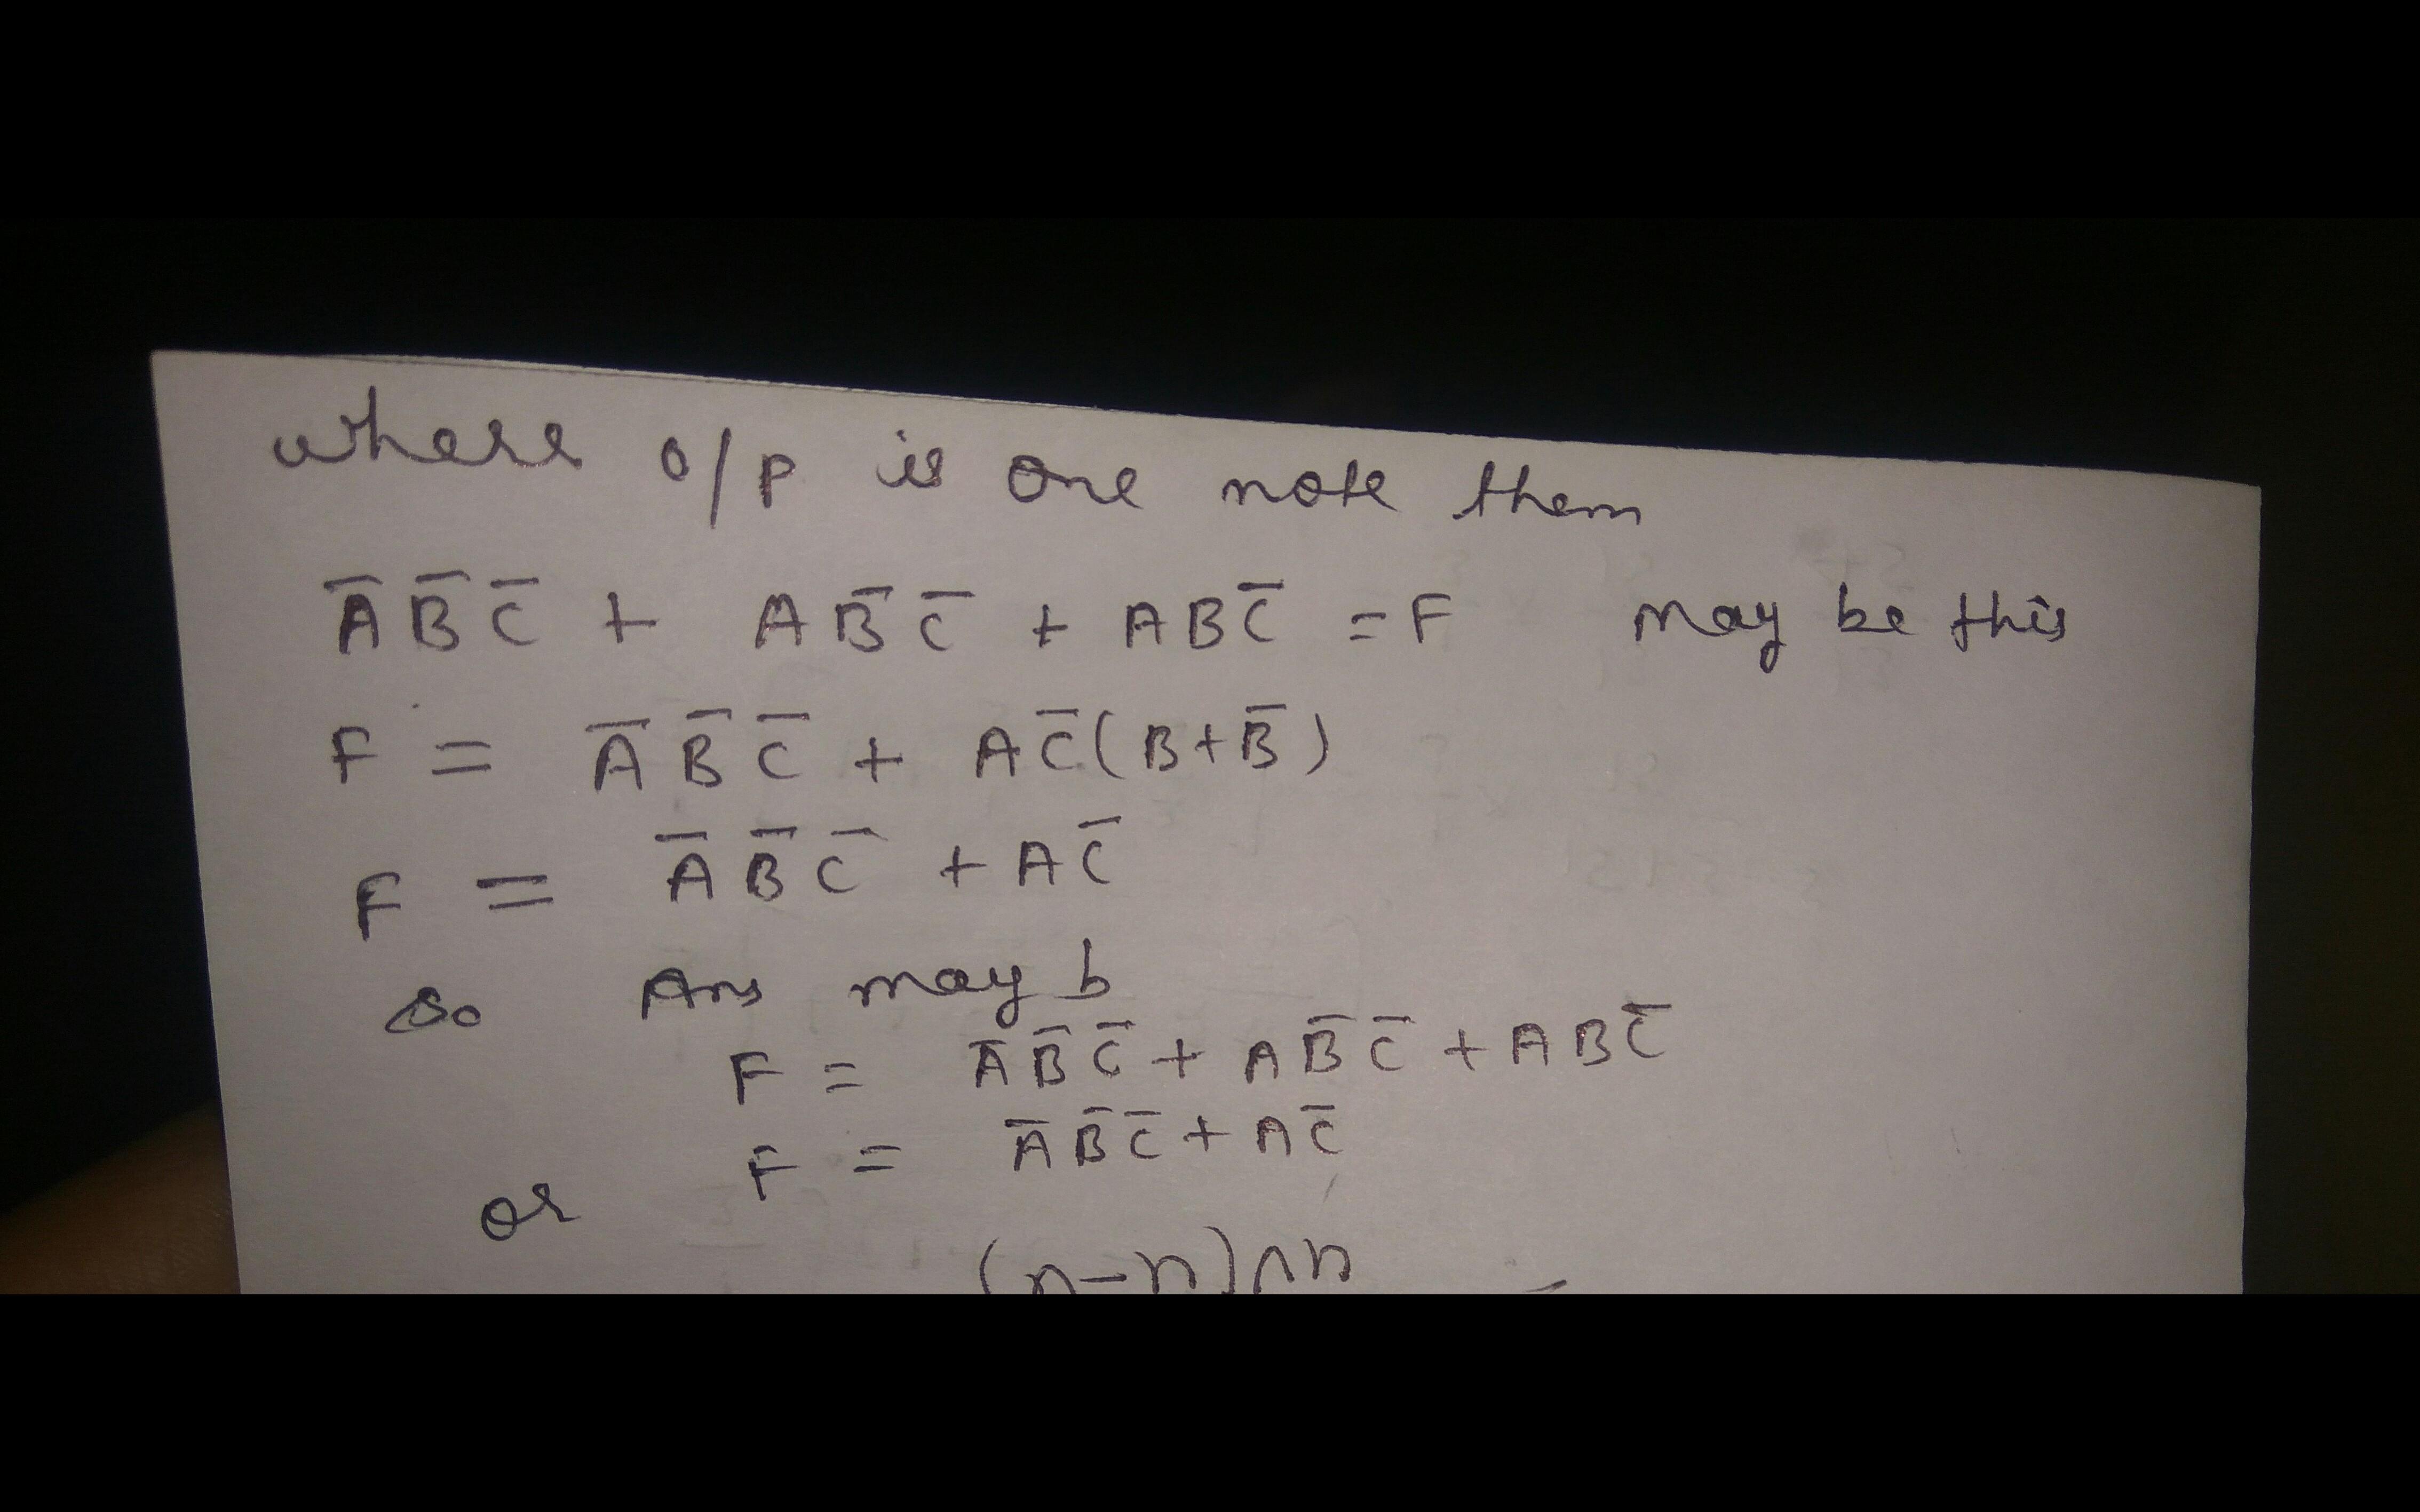 where o/p is one note them
A̅ B̅ C̅ + A B̅ C̅ + A B C̅ = F may be this
F = A̅ B̅ C̅ + A C̅ ( B + B̅ )
F = A̅ B̅ C̅ + A C̅
So Ans may b
F = A̅ B̅ C̅ + A B̅ C̅ + A B C̅
or F = A̅ B̅ C̅ + A C̅